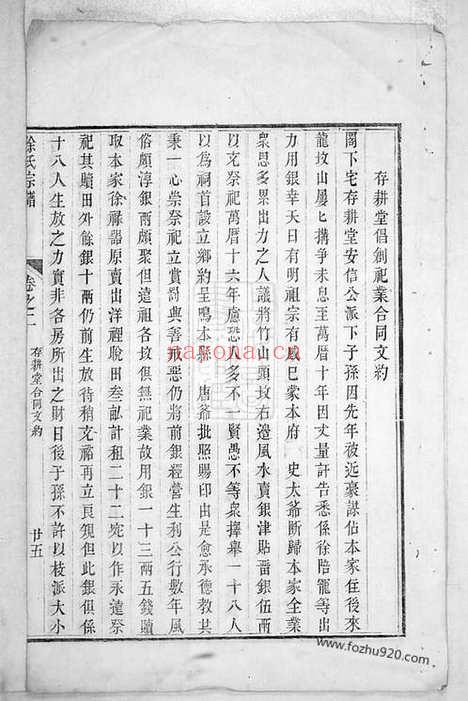 存耕堂倡創祀業合同文約
閣下宅存耕堂安信公派下子孫因先年被近豪謀佔本家住後來
龍坟山屢〻搆爭未息至萬曆十年因丈量訐告悉係徐陪寵等出
力用銀幸天日有明祖宗有威已蒙本府 史太爺斷歸本家全業
衆思多累出力之人議將竹山頭坟右邉風水賣銀津貼畱銀伍兩
以充祭祀萬曆十六年慮恐人多不一賢愚不等衆擇舉一十八人
以爲祠首設立鄉約呈鳴本縣 唐爺批照賜印由是愈承德教其
秉一心崇祭祀立賞罰與善戒惡仍將前銀經營生利公行數年風
俗頗淳銀兩頗聚但遠祖各坟俱無祀業故用銀一十三兩五錢贖
取本家徐祿器原賣出洋裡股田叁畝計租二十二兊以作永遠祭
祀其贖田外餘銀十兩仍前生放待稍充裕再立良規但此銀俱係
十八人生放之力實非各房所出之財日後子孫不許以枝派大小
徐氏宗譜
卷之二
存耕堂合同文約
廿五
nayona.cn
www.fozhu920.com